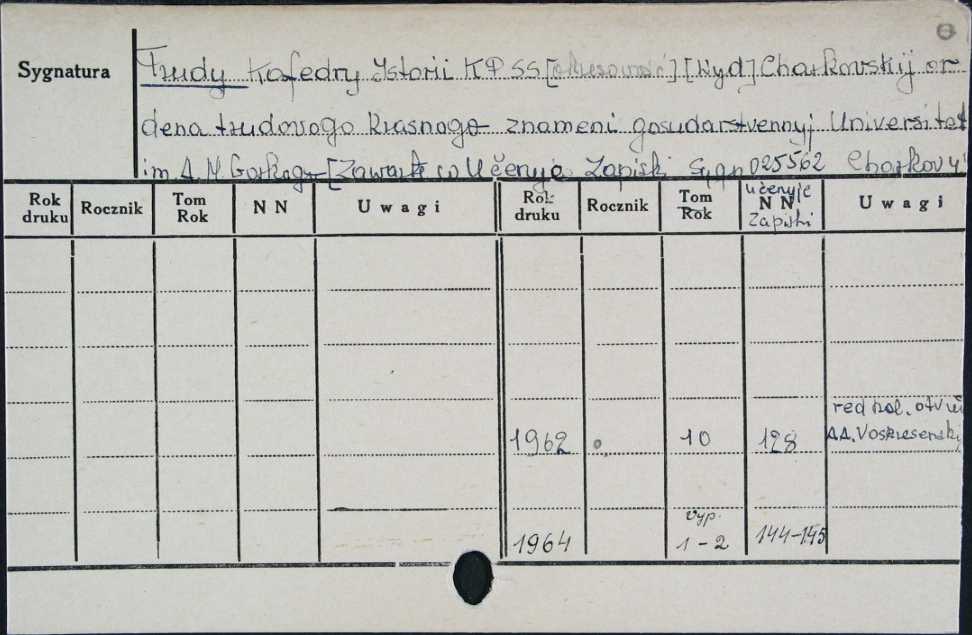 Sygnatura
Trudy Kafedry Istorii KPSS [ ] [Wyd] Charkovskij or-
dena trudovogo krasnogo znameni gosudarstvennyj Universitet
im A. M Gorkogo [Zawarte w Učenyje Zapiski Sygn 025562 Charkov
Rok druku Rocznik Tom Rok N N Uwagi Rok druku Rocznik Tom Rok Učenyje N N Zapiski Uwagi
red kol. otv
1962 10 128 A.A. Voskresenskij
vyp.
1964 1-2 144-145